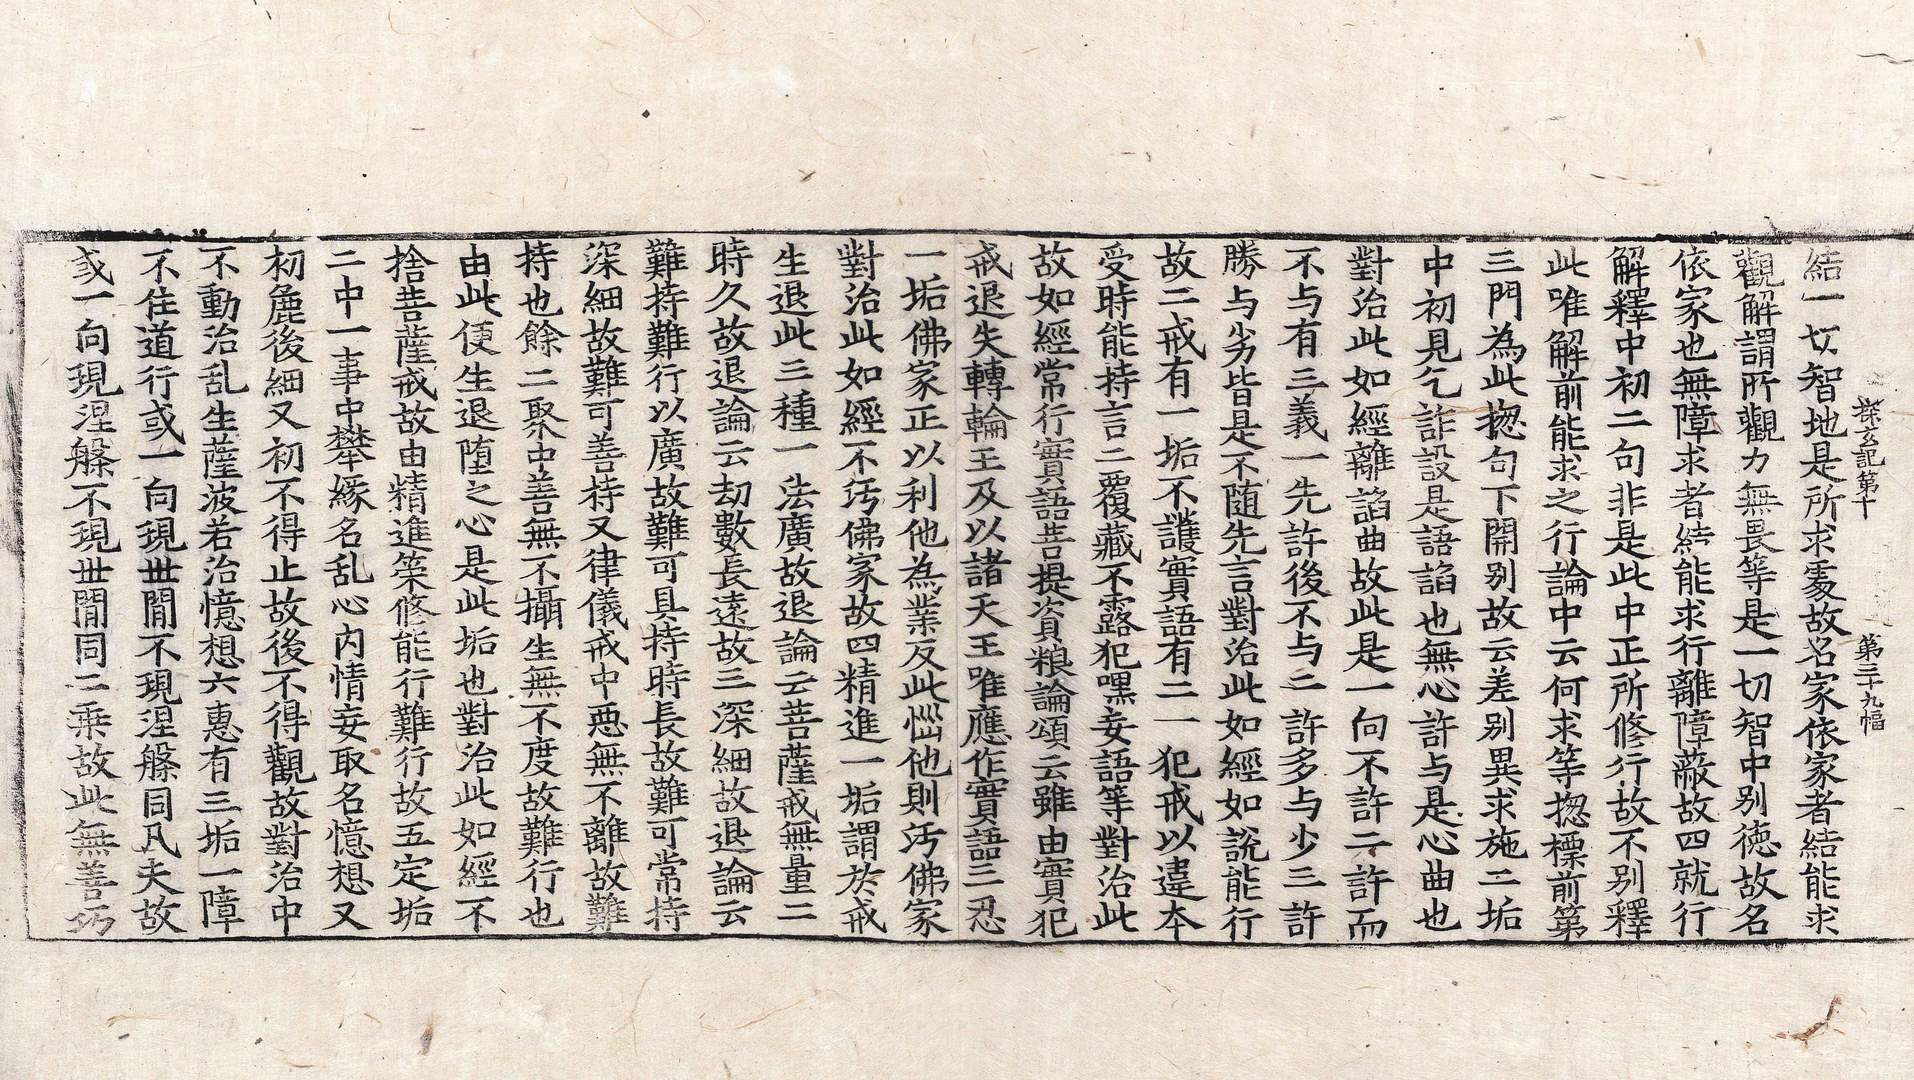 探玄記第十 第三十九幅
結一切智地是所求處故名家依家者結能求
觀解謂所觀力無畏等是一切智中別德故名
依家也無障求者結能求行離障蔽故四就行
解釋中初二句非是此中正所修行故不別釋
此唯解前能求之行論中云何求等揔標前第
三門為此揔句下開別故云差別異求施二垢
中初見乞詐設是語諂也無心許与是心曲也
對治此如經離諂曲故此是一向不許二許而
不与有三義一先許後不与二許多与少三許
勝与劣皆是不随先言對治此如經如說能行
故二戒有一垢不護實語有二一犯戒以違本
受時能持言二覆藏不露犯嘿妄語等對治此
故如經常行實語菩提資粮論頌云雖由實犯
戒退失轉輪王及以諸天王唯應作實語三忍
一垢佛家正以利他為業反此惱他則汚佛家
對治此如經不汚佛家故四精進一垢謂於戒
生退此三種一法廣故退論云菩薩戒無量二
時久故退論云劫數長遠故三深細故退論云
難持難行以廣故難可具持時長故難可常持
深細故難可善持又律儀戒中惡無不離故難
持也餘二聚中善無不攝生無不度故難行也
由此便生退墮之心是此垢也對治此如經不
捨菩薩戒故由精進策修能行難行故五定垢
二中一事中攀緣名乱心內情妄取名憶想又
初麁後細又初不得止故後不得觀故對治中
不動治乱生薩波若治憶想六惠有三垢一障
不住道行或一向現世間不現涅槃同凡夫故
或一向現涅槃不現世間同二乘故此無善巧